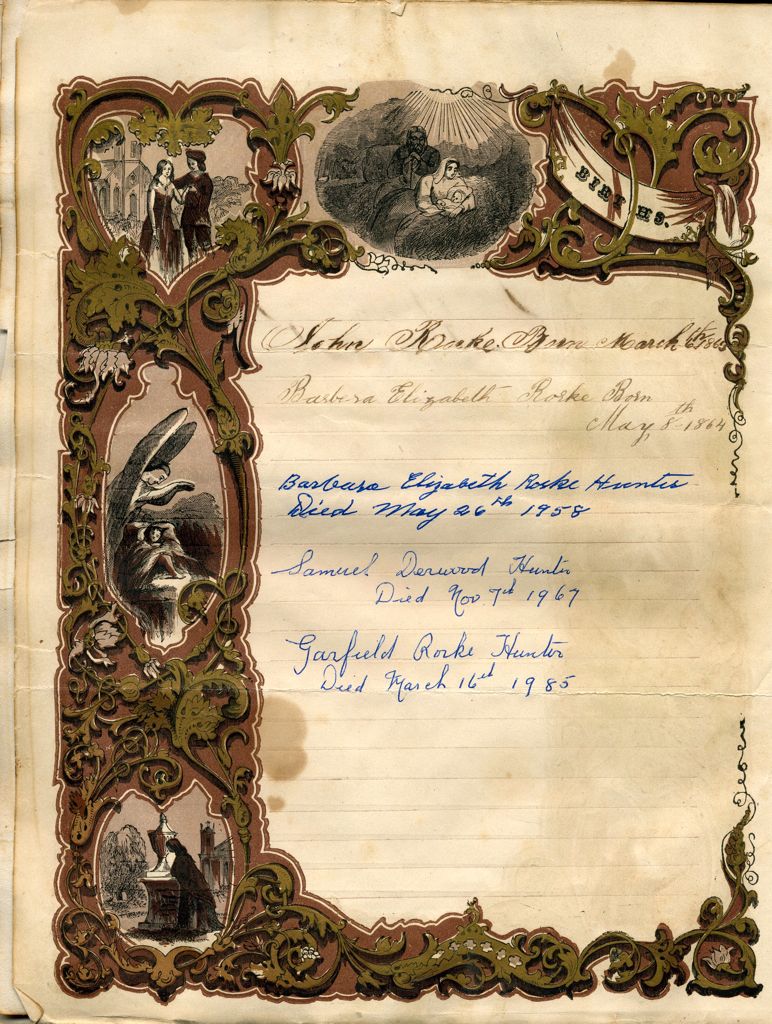 BIRTHS.
John Rorke. Born March 6th 1863
Barbera Elizabeth Rorke Born
May 8th 1864
Barbara Elizabeth Rorke Hunter
Died May 26th 1958
Samuel Derwood Hunter
Died Nov 7th 1967
Garfield Rorke Hunter
Died March 16th 1985